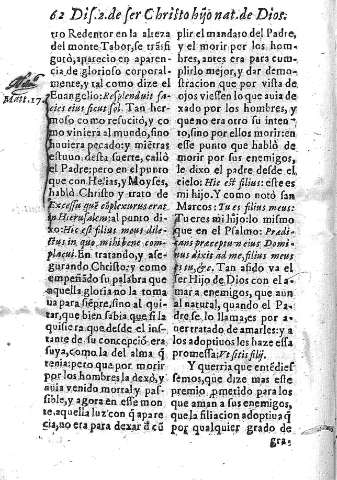 62 Dis. 2. de ser Christo hijo nat. de Dios.
tro Redentor en la alteza
del monte Tabor, se trãsfi
guró, aparecio en aparen-
cia de glorioso corporal-
mente, y tal como dize el
Euangelio: Resplenduit fa-
cies eius sicut sol. Tan her-
moso como resucitó, y co
mo viniera al mundo, sino
huuiera pecado: y miẽtras
estuuo desta suerte, calló
el Padre; pero en el punto
que con Helias, y Moyses,
habló Christo y trato de
Excessu quẽ cõpleturus erat
in Hierusalem; al punto di-
xo: Hic est filius meus dile-
ctus in quo, mihi bene com-
placui. En tratando, y ase-
gurando Christo: y como
empeñado su palabra que
aquella gloria no la toma
ua para siẽpre, sino al qui-
tar, que bien sabia que si la
quisiera que desde el ins-
tante de su concepció era
suya, como la del alma q̃
tenia: pero que por morir
por los hombres la dexó, y
auia venido mortal y pas-
sible, y agora en esse mon
te, aquella luz con q̃ apare
cia, no era para dexar d̃ cũ
Matt. 17.
plir el mandato del Padre,
y el morir por los hom-
bres, antes era para cum-
plirlo mejor, y dar demos-
tración que por vista de
ojos viessen lo que auia de
xado por los hombres, y
que no era otro su inten-
to, sino por ellos morir: en
esse punto que habló de
morir por sus enemigos,
le dixo el padre desde el
cielo: Hic est filius: este es
mi hijo. Y como notó san
Marcos: Tu es filius meus:
Tu eres mi hijo: lo mismo
que en el Psalmo: Predi-
cans preceptum eius Domi-
nus dixit ad me, filius meus
es tu, &c. Tan asido va el
ser Hijo de Dios con el a-
mar a enemigos, que aun
al natural, quando el Pa-
dre se lo llama, es por a-
uer tratado de amarles: y a
los adoptiuos les haze essa
promessa: Vt sitis filij.
Y querria que entẽdies
semos, que dize mas esse
premio prometido para los
que aman a sus enemigos,
que la filiacion adoptiua q̃
por qualquier grado de
gra-